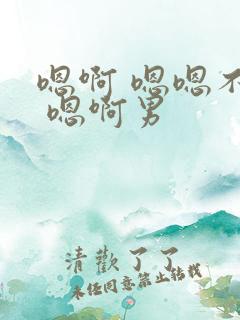 嗯啊 嗯嗯不
嗯啊男
清歡了了
未经同意禁止转载